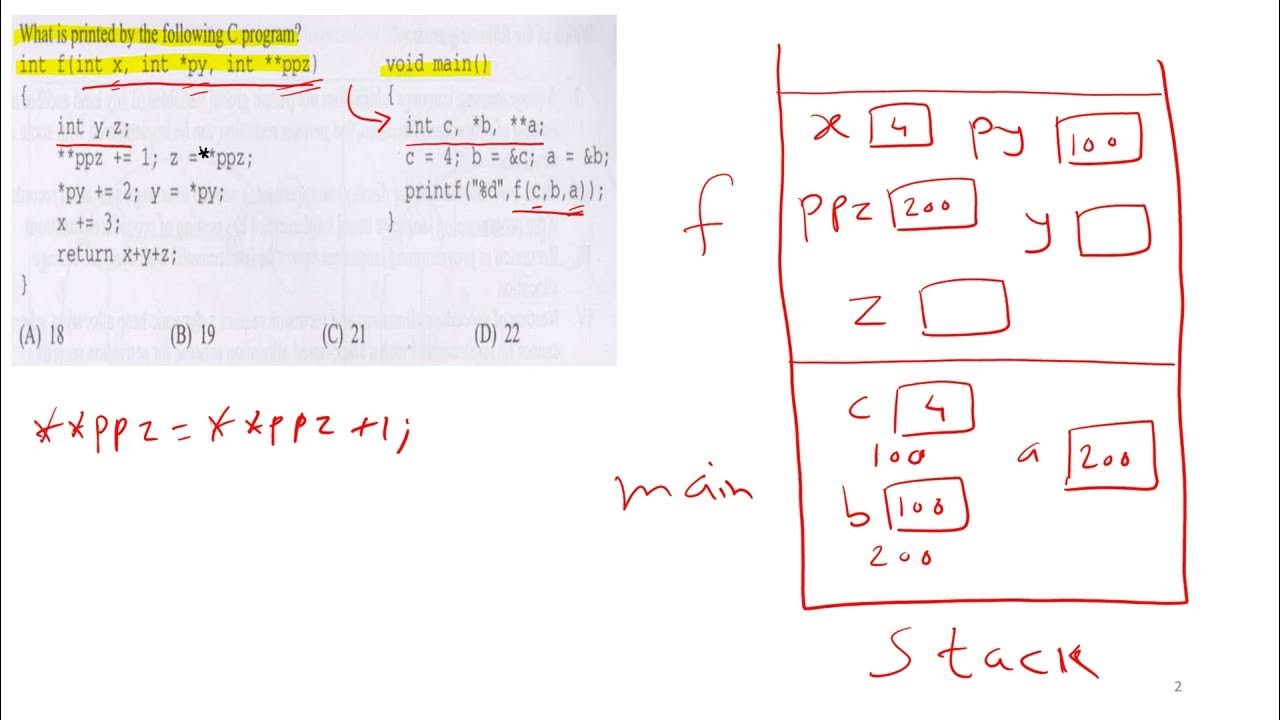 What is printed by the following C program?
int f(int x, int *py, int **ppz)
{
int y,z;
**ppz += 1; z =**ppz;
*py += 2; y = *py;
x += 3;
return x+y+z;
}
void main()
{
int c, *b, **a;
c = 4; b = &c; a = &b;
printf("%d",f(c,b,a));
}
(A) 18 (B) 19 (C) 21 (D) 22
**ppz = **ppz +1;
f
x 4 py 100
ppz 200 y
z
main
c 4
100
a 200
b 100
200
Stack
2